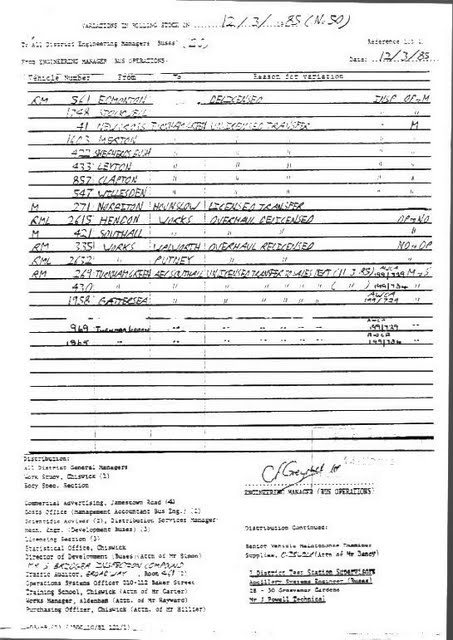 VARIATIONS IN ROLLING STOCK ON 12/3/85 (N.50)
To: All District Engineering Managers 'Buses'
Reference
From: ENGINEERING MANAGER (BUS OPERATIONS)
Date: 12/3/85
Vehicle Number From To Reason for variation
RM 561 EDMONTON DELICENSED INSP OP-M
1748
41 NEW CROSS TURNHAM GREEN UNLICENSED TRANSFER M
1603 MERTON " " " "
422 SHEPHERDS BUSH " " " "
433 LEYTON " " " "
857 CLAPTON " " " "
547 WILLESDEN " " " "
M 271 NORBITON HOUNSLOW LICENSED TRANSFER
RML 2615 HENDON WORKS OVERHAUL DELICENSED OP-NO
M 421 SOUTHALL " " " "
RM 335 WORKS WALWORTH OVERHAUL RELICENSED NO-OP
RML 2632 " PUTNEY " " "
RM 269 TURNHAM GREEN AEC SOUTHALL UNLICENSED TRANSFER TO SALES DEPT (11 3 85) AWCA 199/729 M-S
430 " " " " " " ( " )
1958 BATTERSEA " " " " " AWCA 199/729
969 TURNHAM GREEN " " " " AWCA 199/729
Distribution:
All District General Managers
Work Study, Chiswick (2)
Body Spec. Section
ENGINEERING MANAGER (BUS OPERATIONS)
Commercial Advertising, Jamestown Road (4)
Costs Office (Management Accountant Bus Eng.) (2)
Scientific Adviser (2), Distribution Services Manager
Mech. Engr. (Development Buses) (3)
Distribution Continued:
Licensing Section (3)
Statistical Office, Chiswick
Senior Vehicle Maintenance Examiner
Director of Development (Buses)(Attn of Mr Simon)
Supplies, (Attn of Mr Dancy)
MR S BRIDGER INSPECTION COMPOUND
Traffic Auditor, BROADWAY, Room
7 District Test Station SUPERVISORS
Operations Systems Officer 210-212 Baker Street
Ancillary Systems Engineer (Buses)
Training School, Chiswick (Attn of Mr Carter)
28 - 30 Grosvenor Gardens
Works Manager, Aldenham (Attn of Mr Hayward)
Mr J Powell Technical
Purchasing Officer, Chiswick (Attn. of Mr Hillier)